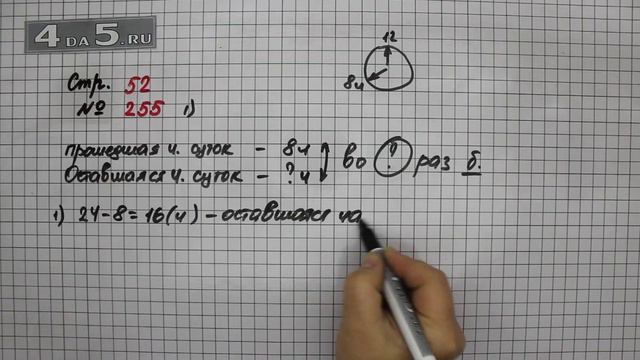 4 DA 5.RU
12
8ч
Стр. 52
№ 255 1)
прошедшая ч. суток - 8ч
Оставшаяся ч. суток - ? ч
во ? раз б.
1) 24-8=16(ч) - оставшаяся ча